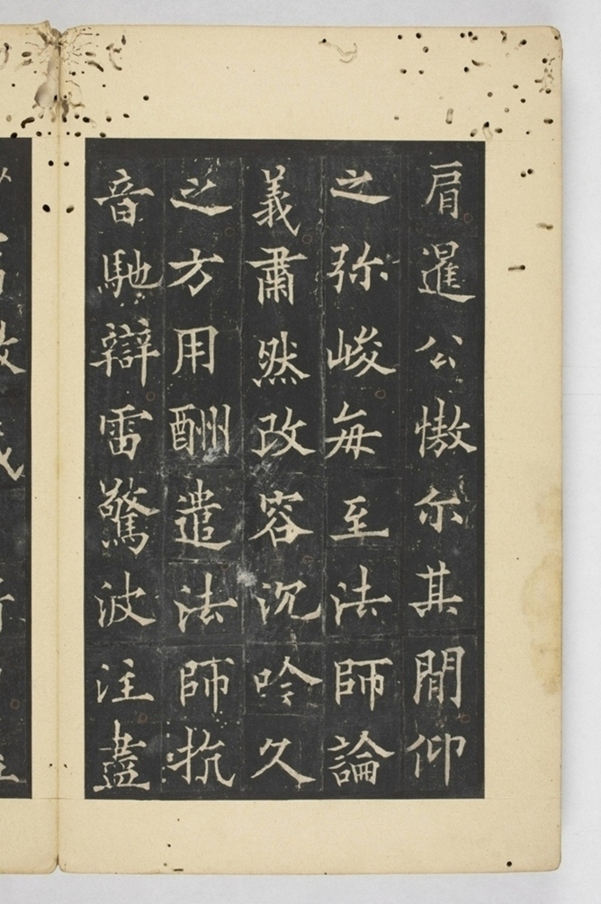 肩暹公慠尔其閒仰
之弥峻每至法師論
義肅然改容沉吟久
之方用酬遣法師抗
音馳辯雷驚波注盡